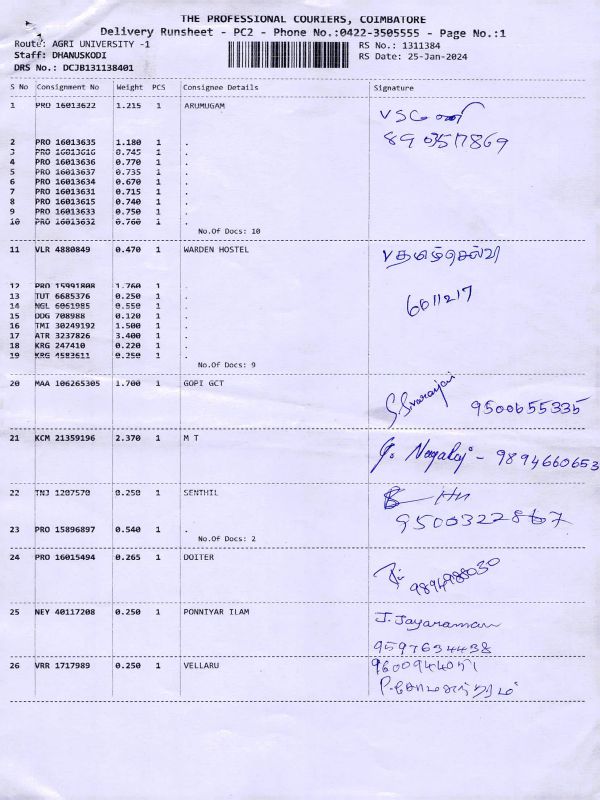 THE PROFESSIONAL COURIERS, COIMBATORE
Delivery Runsheet - PC2 - Phone No.:0422-3505555 - Page No.:1
Route: AGRI UNIVERSITY -1 RS No.: 1311384
Staff: DHANUSKODI RS Date: 25-Jan-2024
DRS No.: DCJB131138401
S No Consignment No Weight PCS Consignee Details Signature
1 PRO 16013622 1.215 1 ARUMUGAM
8903517869
2 PRO 16013635 1.180 1 .
3 PRO 16013616 0.745 1 .
4 PRO 16013636 0.770 1 .
5 PRO 16013637 0.735 1 .
6 PRO 16013634 0.670 1 .
7 PRO 16013631 0.715 1 .
8 PRO 16013615 0.740 1 .
9 PRO 16013633 0.750 1 .
10 PRO 16013632 0.760 1 .
No.Of Docs: 10
11 VLR 4880849 0.470 1 WARDEN HOSTEL V தமிழ்செல்வி
12 PRO 15991808 1.760 1 .
13 TUT 6685376 0.250 1 . 6611217
14 NGL 6061985 0.550 1 .
15 DDG 708988 0.120 1 .
16 TMI 30249192 1.500 1 .
17 ATR 3237826 3.400 1 .
18 KRG 247410 0.220 1 .
19 KRG 4583611 0.250 1 .
No.Of Docs: 9
20 MAA 106265305 1.700 1 GOPI GCT
9500655335
21 KCM 21359196 2.370 1 M T
G. Nagaraj - 9894660653
22 TNJ 1207570 0.250 1 SENTHIL
9500322867
23 PRO 15896897 0.540 1 .
No.Of Docs: 2
24 PRO 16015494 0.265 1 DOITER
9894988030
25 NEY 40117208 0.250 1 PONNIYAR ILAM J. Jayaraman
9597634438
26 VRR 1717989 0.250 1 VELLARU 9600944051
P. சோமசுந்தரம்